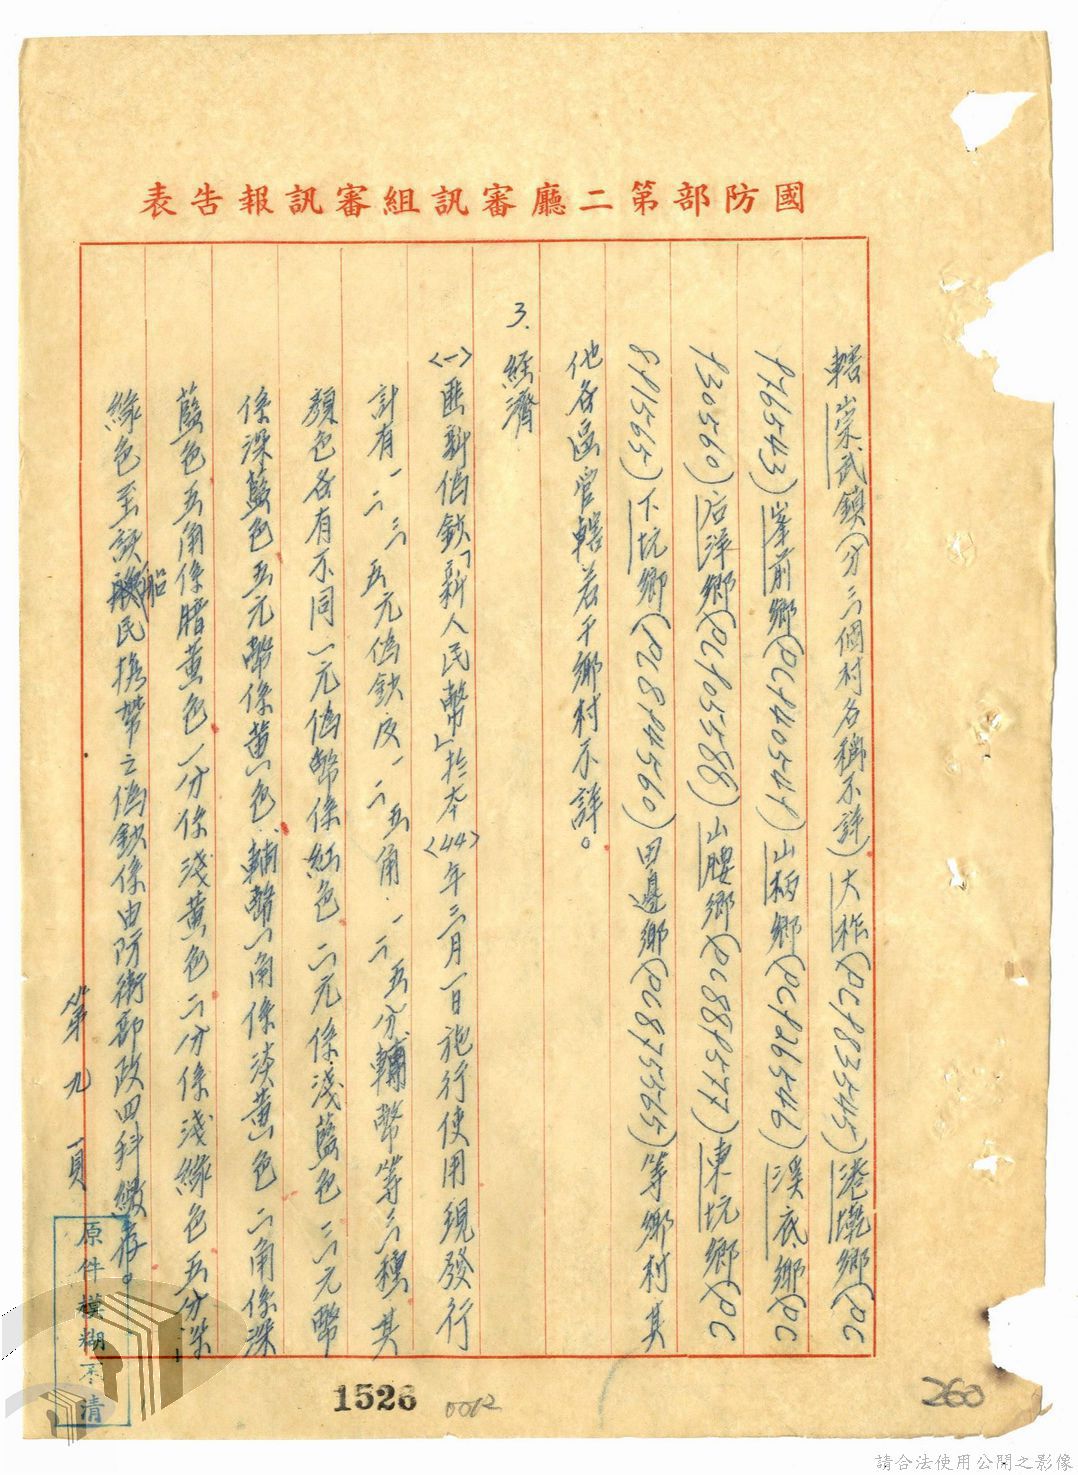 國防部第二廳審訊組審訊報告表
轄崇武鎮(分三個村名稱不詳)大柞(PC983545)港墘鄉(PC
976543)峯前鄉(PC940549)山柄鄉(PC926546)溪底鄉(PC
930560)后洋鄉(PC905588)山腰鄉(PC889577)東坑鄉(PC
891565)下坑鄉(PC894560)田邊鄉(PC875565)等鄉村其
他各區管轄若干鄉村不詳。
3.經濟
〈一〉匪新偽鈔「新人民幣」於本〈44〉年三月一日施行使用現發行
計有一二三五元偽鈔及一二五角一二五分輔幣等三種其
顏色各有不同一元偽幣係紅色二元係淺藍色三元幣
係深藍色五元幣係黃色輔幣一角係淡黃色二角係深
藍色五角係暗黃色一分係淺黃色二分係淺綠色五分深
綠色至該船民携帶之偽鈔係由防衛部政四科繳存。
第九頁
原件模糊不清
1526
0012
260
請合法使用公開之影像